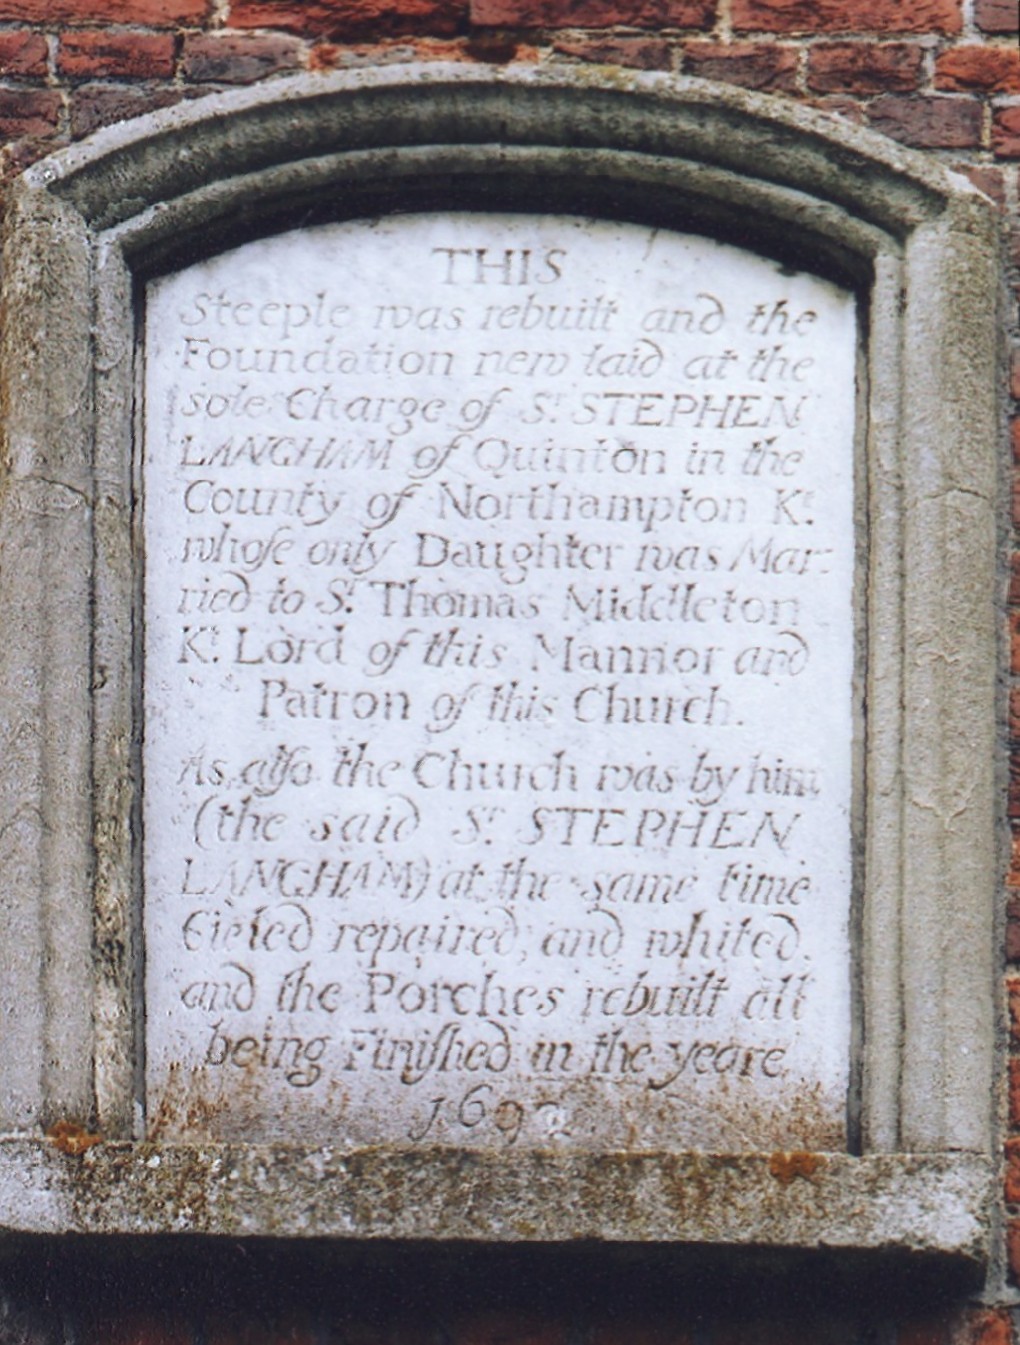 THIS
Steeple was rebuilt and the
Foundation new laid at the
sole Charge of Sr. STEPHEN
LANGHAM of Quinton in the
County of Northampton Kt.
whoſe only Daughter was Mar-
ried to Sr. Thomas Middleton
Kt. Lord of this Mannor and
Patron of this Church.
As alſo the Church was by him
(the said Sr. STEPHEN
LANGHAM) at the same time
Cieled repaired, and whited,
and the Porches rebuilt all
being Finiſhed in the yeare